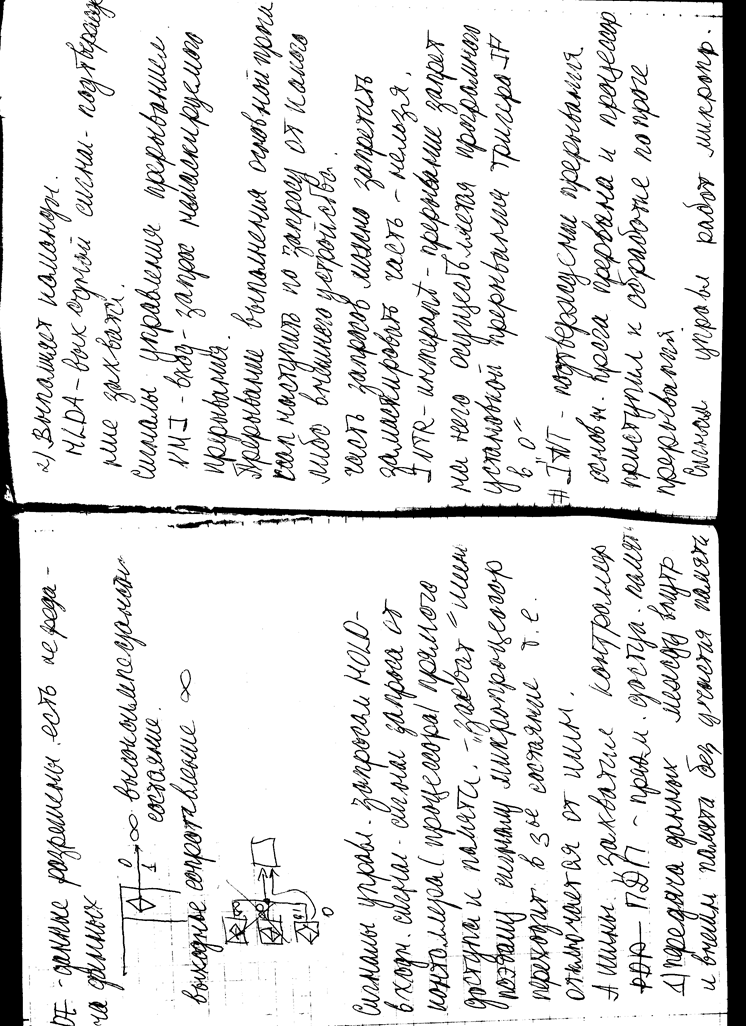 DE - данные разрешены. есть переда-
ча данных
0
1 → ∞ высокоимпедансн
состояние.
выходное сопротивление ∞
0
Сигналы управл. запросам HOLD-
входн. сигнал - сигнал запроса от
контоллера (процессора) прямого
доступа к памяти. - "захват" шин
поэтому сигналу микропроцессор
переходит в 3е состояние т.е.
отключается от шин.
А шины захватил контролер
ПДП - прям. доступа. памят
1) передача данных между внутр
и внешн памяти без участия памяти
2) Выполняет команды.
HLDA - вых одной сигнал - подтвержде
ние захвата.
Сигналы управления прерыванием.
NMI - вход - запрос немаскируемого
прерывания.
Прерывание выполнения основной прогн
может наступить по запросу от какого
либо внешнего устройства.
часть запросов можно запретить
замаскировать часть - нельзя.
INTR - интерапт - прерывание запрет
на него осуществляется програмного
установкой прерывания тригера IF
в "0"
# INT - подтверждение прерывания
основн. прога прервана и процессор
приступил к обработке по проге
прерываний.
Сигнал управл работ микропр.